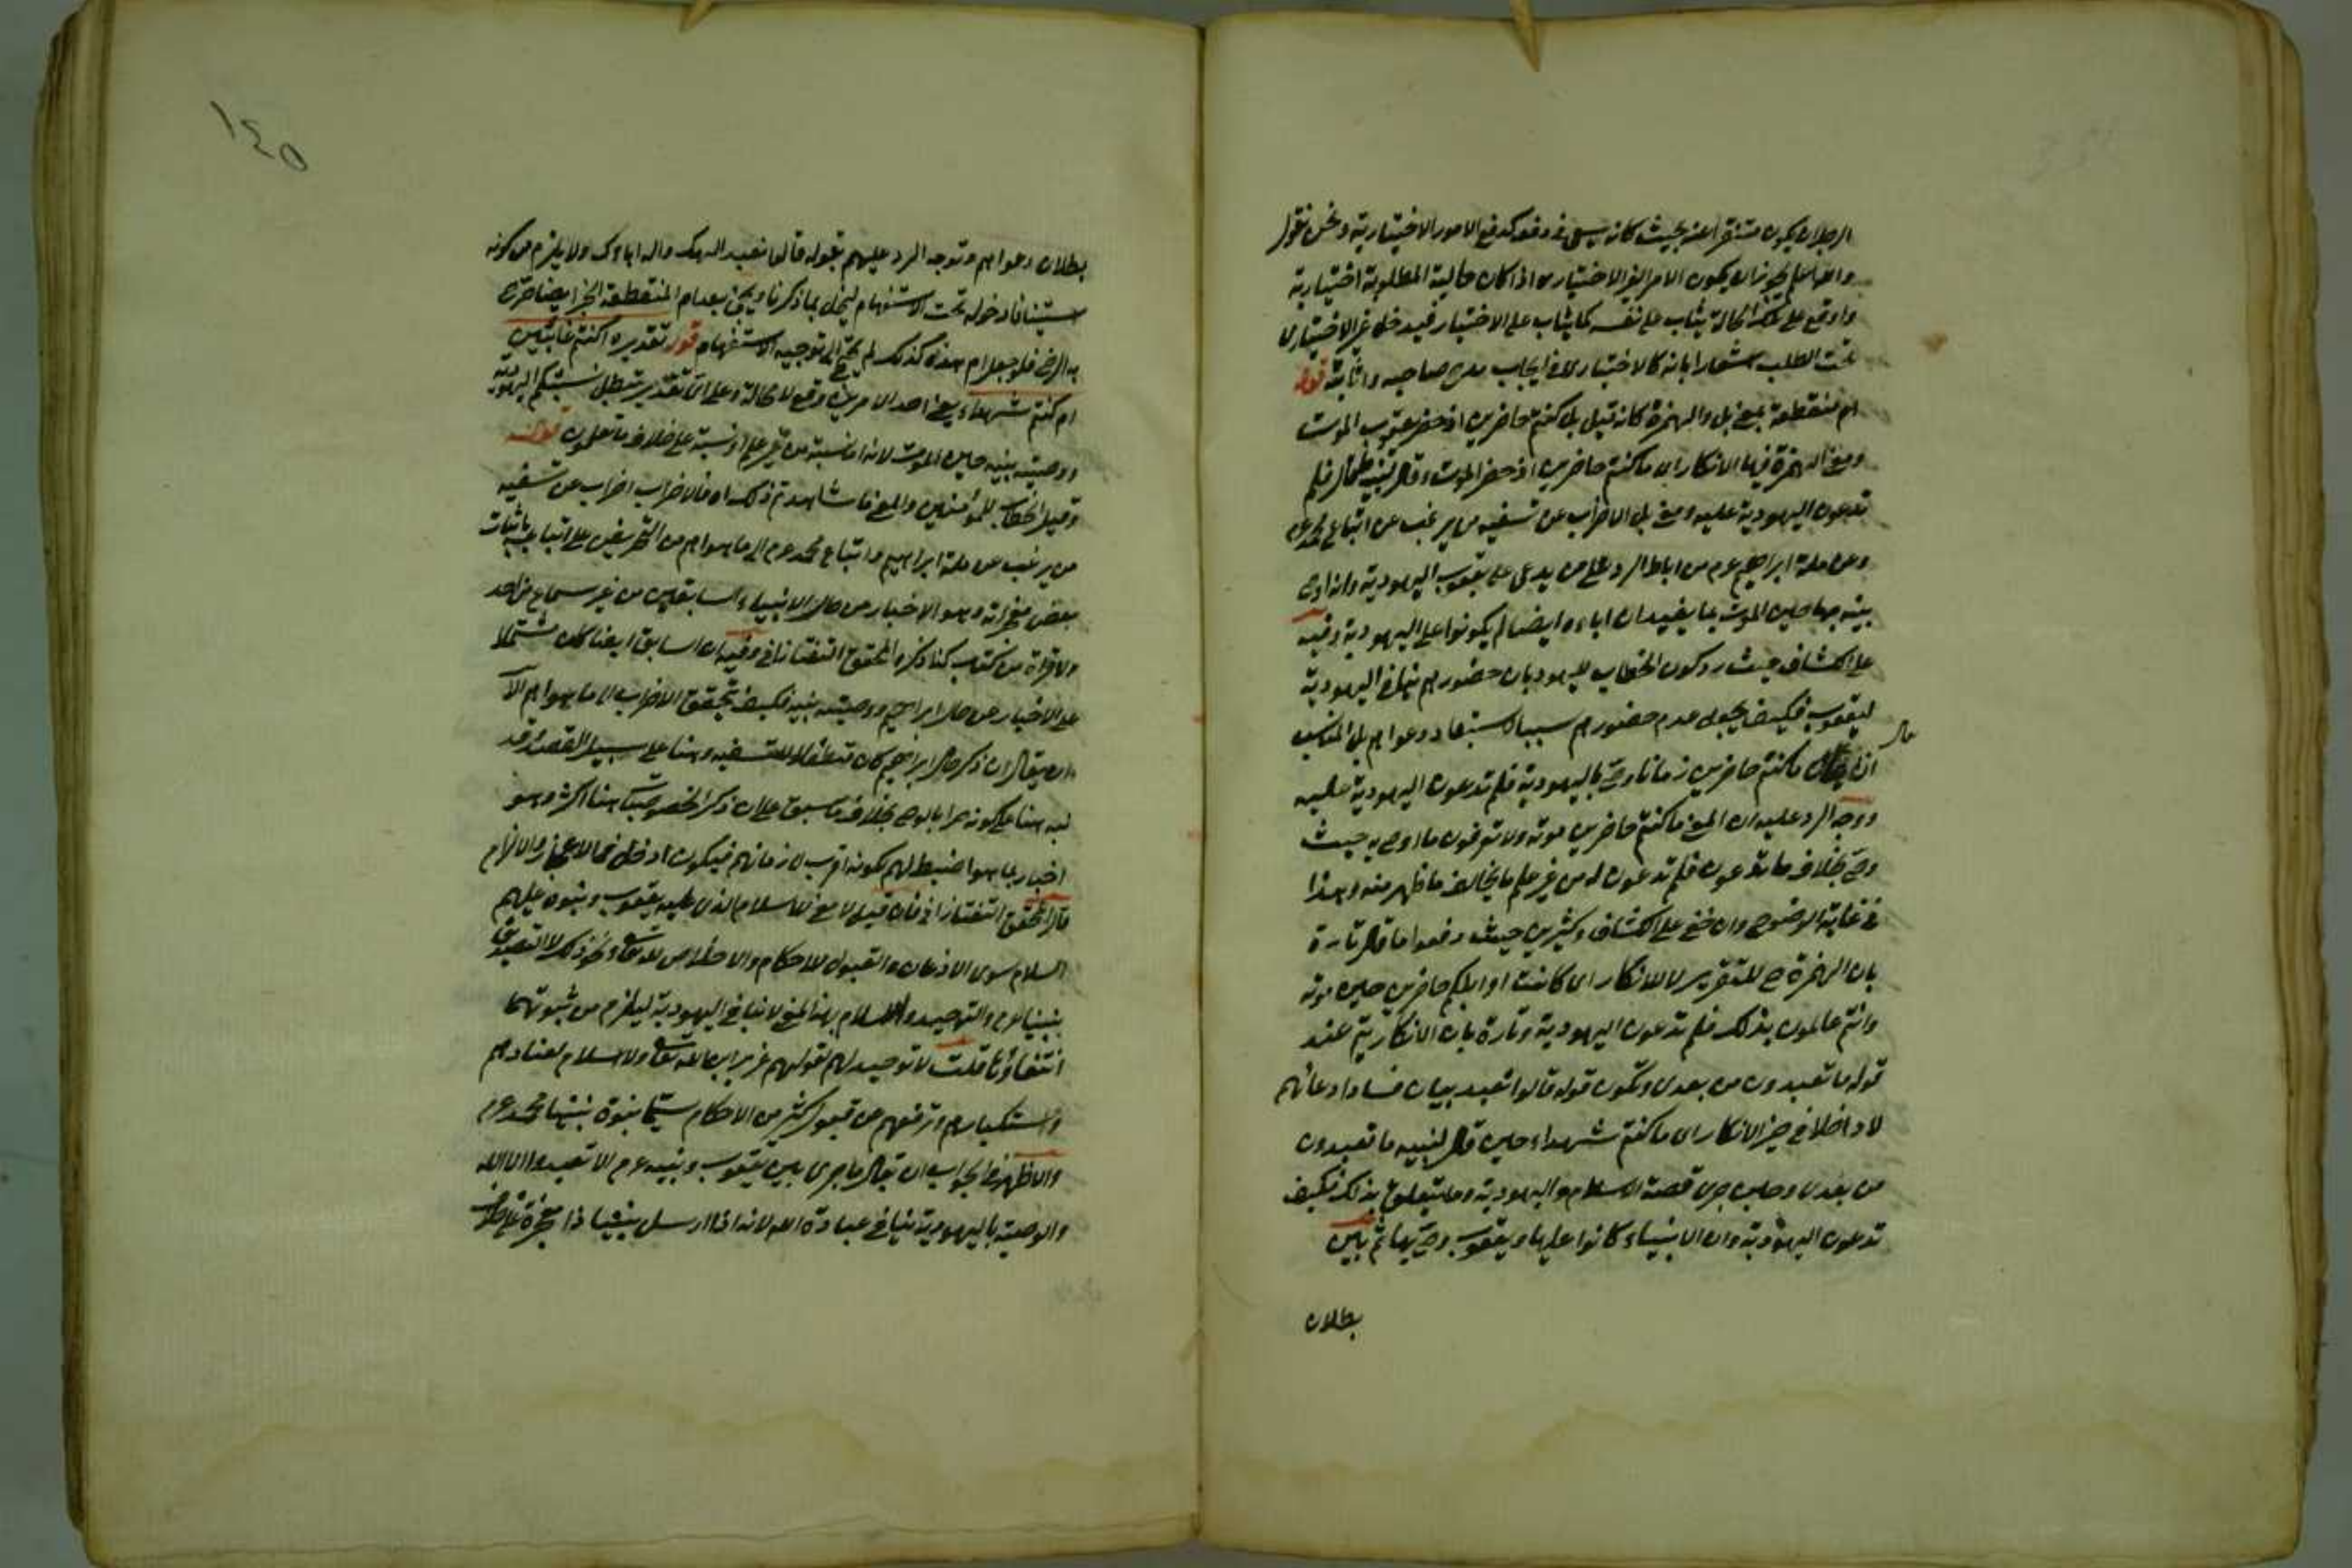 الرجلان يكون متنفرا عنه بحيث كانه يسعى في دفعه كدفع الامور الاختيارية ونحن نقول
والله اعلم يجوز ان يكون الامر الغير الاختياري اذا كان حالية المطلوبة اختيارية
واوقع على تلك الحالة يثاب على نفسه كما يثاب على الاختيار فيدخل غير الاختياري
تحت الطلب اشعارا بانه كالاختياري في ايجاب مدح صاحبه واثابته قوله
ام منقطعة بمعنى بل والهمزة كانه قيل بل كنتم حاضرين اذ حضر يعقوب الموت
ومعنى الهمزة فيها الانكار اى ما كنتم حاضرين اذ حضر الموت وقال لبنيه ما قال فلم
تدعون اليهودية عليه ومعنى بل الاضراب عن تسفيه من يرغب عن اتباع محمد عم
وعن ملة ابراهيم عم من اباطال الرد على من يدعى على يعقوب اليهودية وانه اوصى
بنيه بها حين الموت بما يفيد ان اباءه ايضا لم يكونوا على اليهودية وفيه
على الكشاف حيث رد كون الخطاب لليهود بان حضورهم ينافى اليهودية
ليعقوب فكيف يجعل عدم حضورهم سببا لاستبعاد دعواهم بل المناسب
ان يقال ما كنتم حاضرين زمانا وصى باليهودية فلم تدعون اليهودية عليه
ووجه الرد عليه ان المعنى ما كنتم حاضرين موته ولا تعرفون ما اوصى به حيث
وصى بخلاف ما تدعون فلم تدعون له من غير علم ما يخالف ما ظهر منه وهذا
في غاية الوضوح وان خفى على الكشاف وكثيرين حيث دفعوا ما قال تارة
بان الهمزة ح للتقرير لا للانكار اى كانت اوائلكم حاضرين حين موته
وانتم عالمون بذلك فلم تدعون اليهودية وتارة بان الانكار يتم عند
قوله ما تعبدون من بعدى وتكون قوله قالوا نعبد بيان فساد ادعائهم
لا داخلا في حيز الانكار اى ما كنتم شهداء حين قال لبنيه ما تعبدون
من بعدى وحين جرى قصة الاسلام واليهودية وما يتعلق بذلك فكيف
تدعون اليهودية وان الانبياء كانوا عليها ويعقوب وصى بها ثم بين
بطلان
١٤٥
بطلان دعواهم وتوجه الرد عليهم بقوله قالوا نعبد الهك واله اباءك ولا يلزم من كونه
استينافا دخوله تحت الاستفهام ليخل بما ذكرنا ويجئ بعد ام المنقطعة الخبر ايضا صرح
به الرضى فلو جعل ام هذه كذلك لم يحتج الى توجيه الاستفهام قوله تقديره اكنتم غائبين
ام كنتم شهداء يعنى احد الامرين وقع لا محالة وعلى اى تقدير تبطل نسبتكم اليهودية
ووصيته بنيه حين الموت لانه اما نسبة من غير علم او نسبة على خلاف ما تعلمون قوله
وقيل الخطاب للمؤمنين والمعنى ما شاهدتم ذلك اه فالاضراب اضراب عن تسفيه
من يرغب عن ملة ابراهيم واتباع محمد عم الى ما هو اهم من التحريض على اتباعه باثبات
بعض معجزاته وهو الاخبار عن حال الانبياء السابقين من غير سماع من احد
ولا قراءة من كتاب كذا ذكره المحقق التفتازانى وفيه ان السابق ايضا كان مشتملا
على الاخبار عن حال ابراهيم ووصيته بنيه فكيف تحقق الاضراب الى ما هو اهم الا
ان يقال ان ذكر حال ابراهيم كان متطفلا للتسفيه وهنا على سبيل القصد وقد
نبه هنا على كونه خبرا بالوحى بخلاف ما سبق على ان ذكر الخصوصيات هنا اكثر وهو
اخبار بما هو اضبط لهم لكونه اقرب لازمانهم فيكون ادخل في الاعجاز والالزام
قال المحقق التفتازانى فان قيل لا معنى للاسلام الذى عليه يعقوب وبنوه عليهم
السلام سوى الاذعان والقبول للاحكام والاخلاص لله تعالى ونحو ذلك لا التصديق
بنبينا عم والتوحيد والاسلام بهذا المعنى لا ينافى اليهودية ليلزم من ثبوتهما
انتفاؤها قلت لا توحيد لهم لقولهم عزير ابن الله تعالى ولا اسلام لعنادهم
واستكبارهم وترفعهم عن قبول كثير من الاحكام سيما نبوة نبينا محمد عم
والاظهر في الجواب ان يقال ما جرى بين يعقوب وبنيه عم الا تعبدوا الا الله
والوصية باليهودية ينافى عبادة الله لانه اذا ارسل نبينا ذا معجزة على خلاف